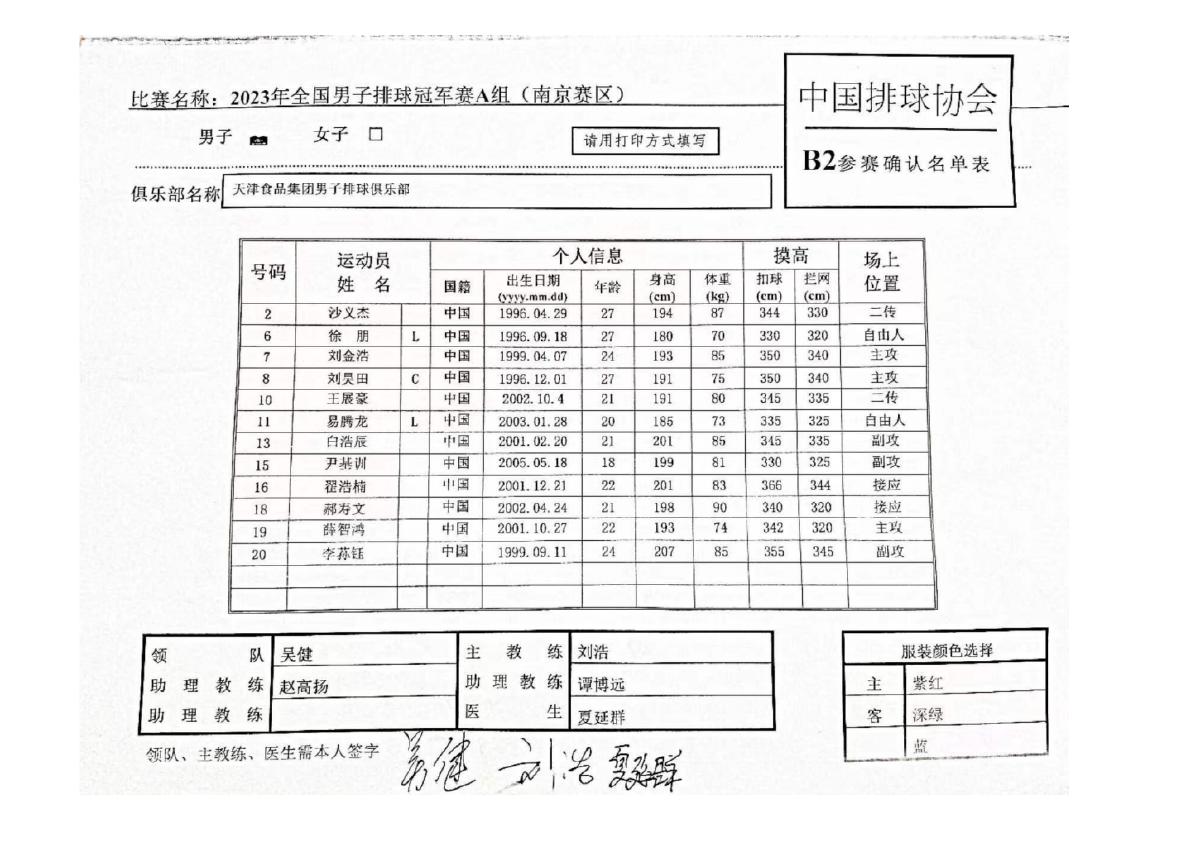 比赛名称：2023年全国男子排球冠军赛A组（南京赛区）
中国排球协会
男子 女子 □
请用打印方式填写
B2参赛确认名单表
俱乐部名称 天津食品集团男子排球俱乐部
号码 运动员姓 名 个人信息 摸高 场上位置
国籍 出生日期(yyyy.mm.dd) 年龄 身高(cm) 体重(kg) 扣球(cm) 拦网(cm)
2 沙义杰 中国 1996.04.29 27 194 87 344 330 二传
6 徐 朋 L 中国 1996.09.18 27 180 70 330 320 自由人
7 刘金浩 中国 1999.04.07 24 193 85 350 340 主攻
8 刘昊田 C 中国 1996.12.01 27 191 75 350 340 主攻
10 王展豪 中国 2002.10.4 21 191 80 345 335 二传
11 易腾龙 L 中国 2003.01.28 20 185 73 335 325 自由人
13 白浩辰 中国 2001.02.20 21 201 85 345 335 副攻
15 尹基训 中国 2005.05.18 18 199 81 330 325 副攻
16 翟浩楠 中国 2001.12.21 22 201 83 366 344 接应
18 郝寿文 中国 2002.04.24 21 198 90 340 320 接应
19 薛智鸿 中国 2001.10.27 22 193 74 342 320 主攻
20 李荪钰 中国 1999.09.11 24 207 85 355 345 副攻
领 队 吴健 主 教 练 刘浩
助 理 教 练 赵高扬 助 理 教 练 谭博远
助 理 教 练 医 生 夏延群
服装颜色选择
主 紫红
客 深绿
蓝
领队、主教练、医生需本人签字 吴健 刘浩 夏延群